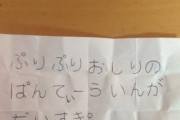 ぷりぷりおしりの
ぱんてぃーういんが
だいすき。